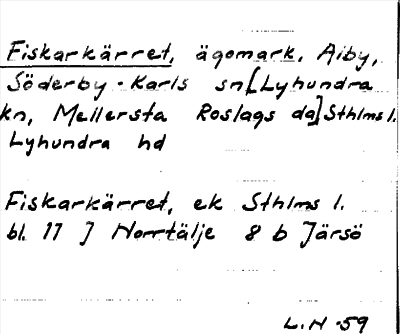 Fiskarkärret, ägomark, Aiby,
Söderby-Karls sn [Lyhundra
kn, Mellersta Roslags da] Sthlms l.
Lyhundra hd
Fiskarkärret, ek Sthlms l.
bl. 11 J Norrtälje 8 b Järsö
L.H -59